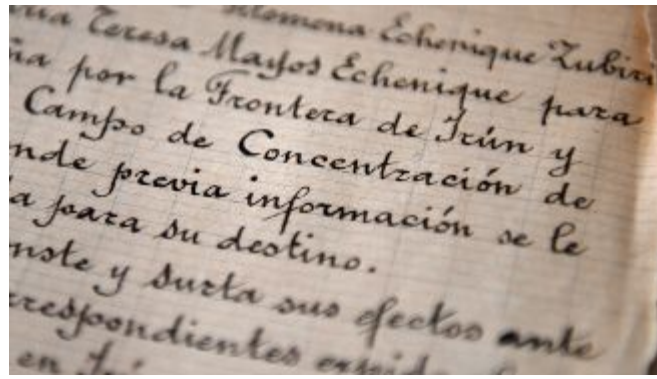 Filomena Echenique Zubiri
Teresa Mayos Echenique para
por la Frontera de Irún y
Campo de Concentración de
nde previa información se le
a para su destino.
nste y surta sus efectos ante
rrespondientes
en